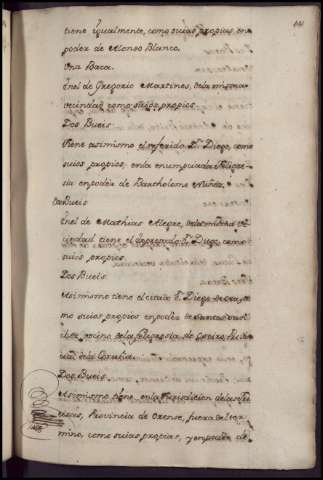 tiene igualmente, como suias propias, en
poder de Alonso Blanco.
Una Baca.
En el de Gregorio Martines, de la misma
vecindad como suios propios
Dos Bueis.
Tiene asimismo el referido Dn. Diego, como
suios propios, en la enunciada Feligre
sia en poder de Bartholome Nuñez,
Bueis
En el de Mathias Alegre, de la misma ve
cindad tiene el expresado Dn. Diego, como
suios propios
Dos Bueis.
Asimismo tiene el citado Dn. Diego de
mo suios propios en poder de
vecino de la feligresia de
Dos Bueis.
Asimismo tiene en la Jurisdicion de
Provincia de Orense, fuera del ter
mino, como suias propias, y en poder de